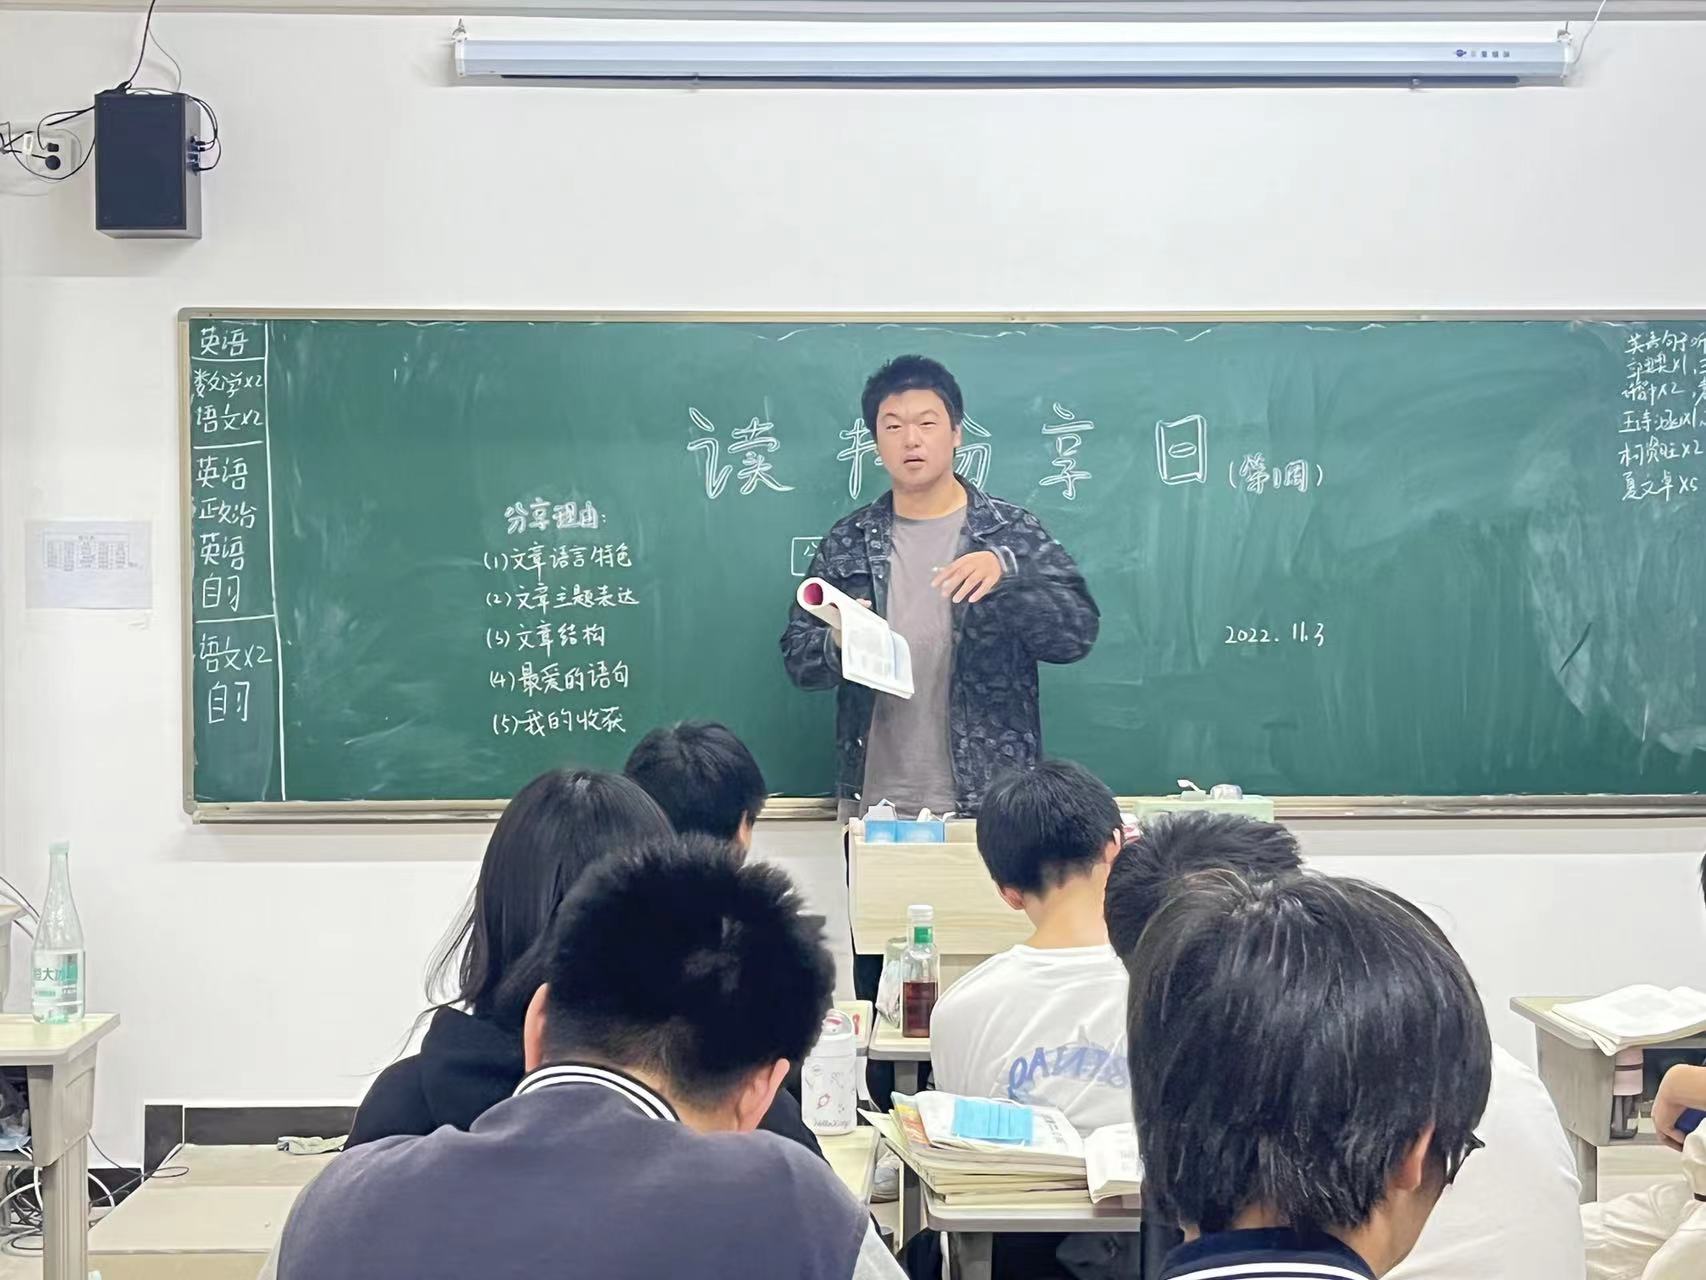 英语
数学x2
语文x2
英语
政治
英语
自习
语文x2
自习
读 分 享 日 (第1周)
分享理由:
(1)文章语言特色
(2)文章主题表达
(3)文章结构
(4)最爱的语句
(5)我的收获
2022. 11.3
英语句子听
x1
x2
王诗涵x1
x2
夏文卓x5
恒大